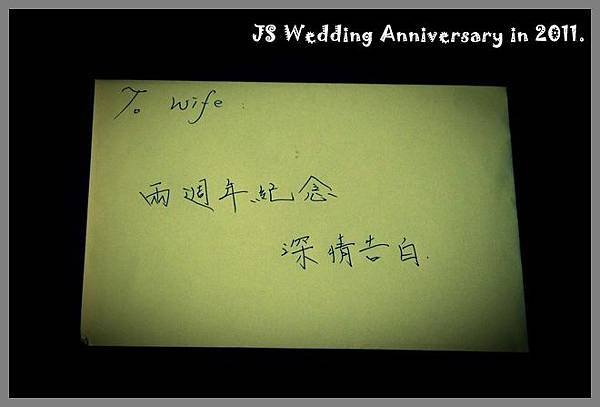 JS Wedding Anniversary in 2011.
To wife
兩週年紀念
深情告白.